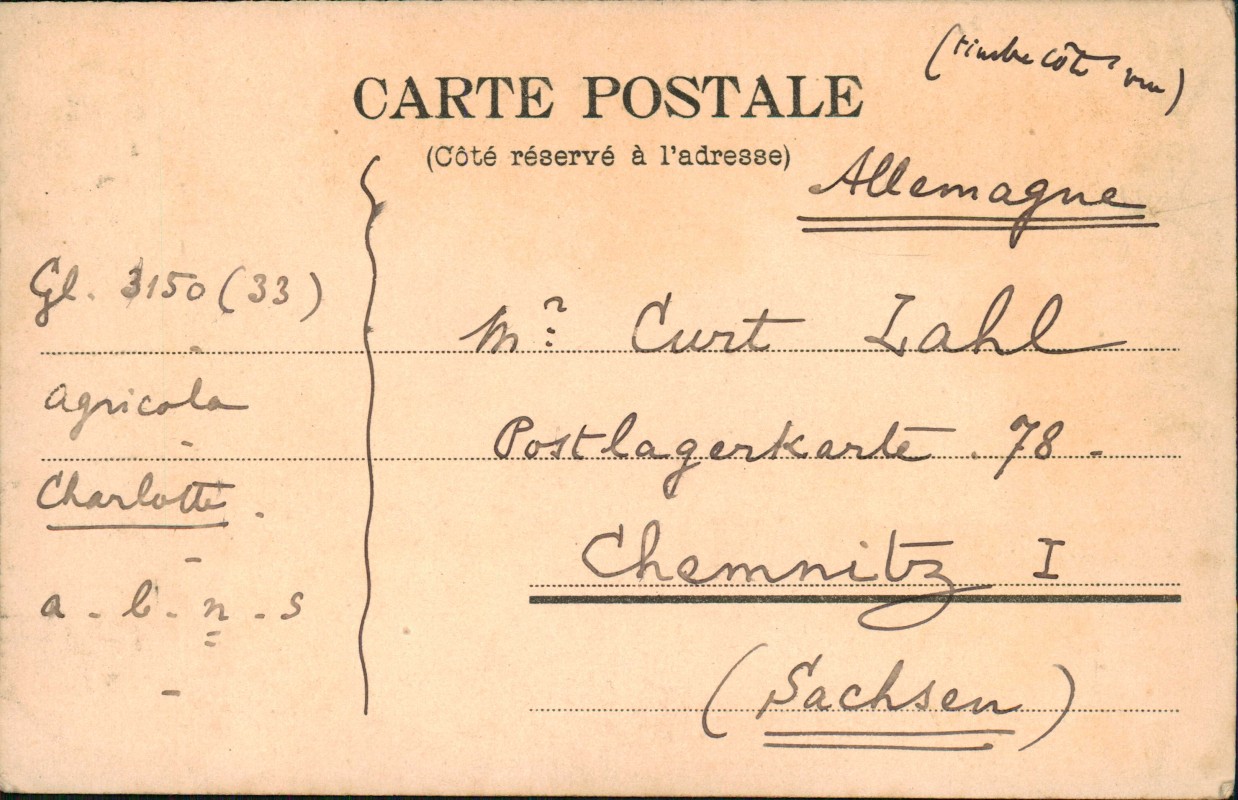 (timbre côté vue)
CARTE POSTALE
(Côté réservé à l'adresse)
Allemagne
Gl. 3150 (33)
Agricola
Charlotte.
a - b - n - s
Mr. Curt Zahl
Postlagerkarte . 78 -
Chemnitz I
(Sachsen)